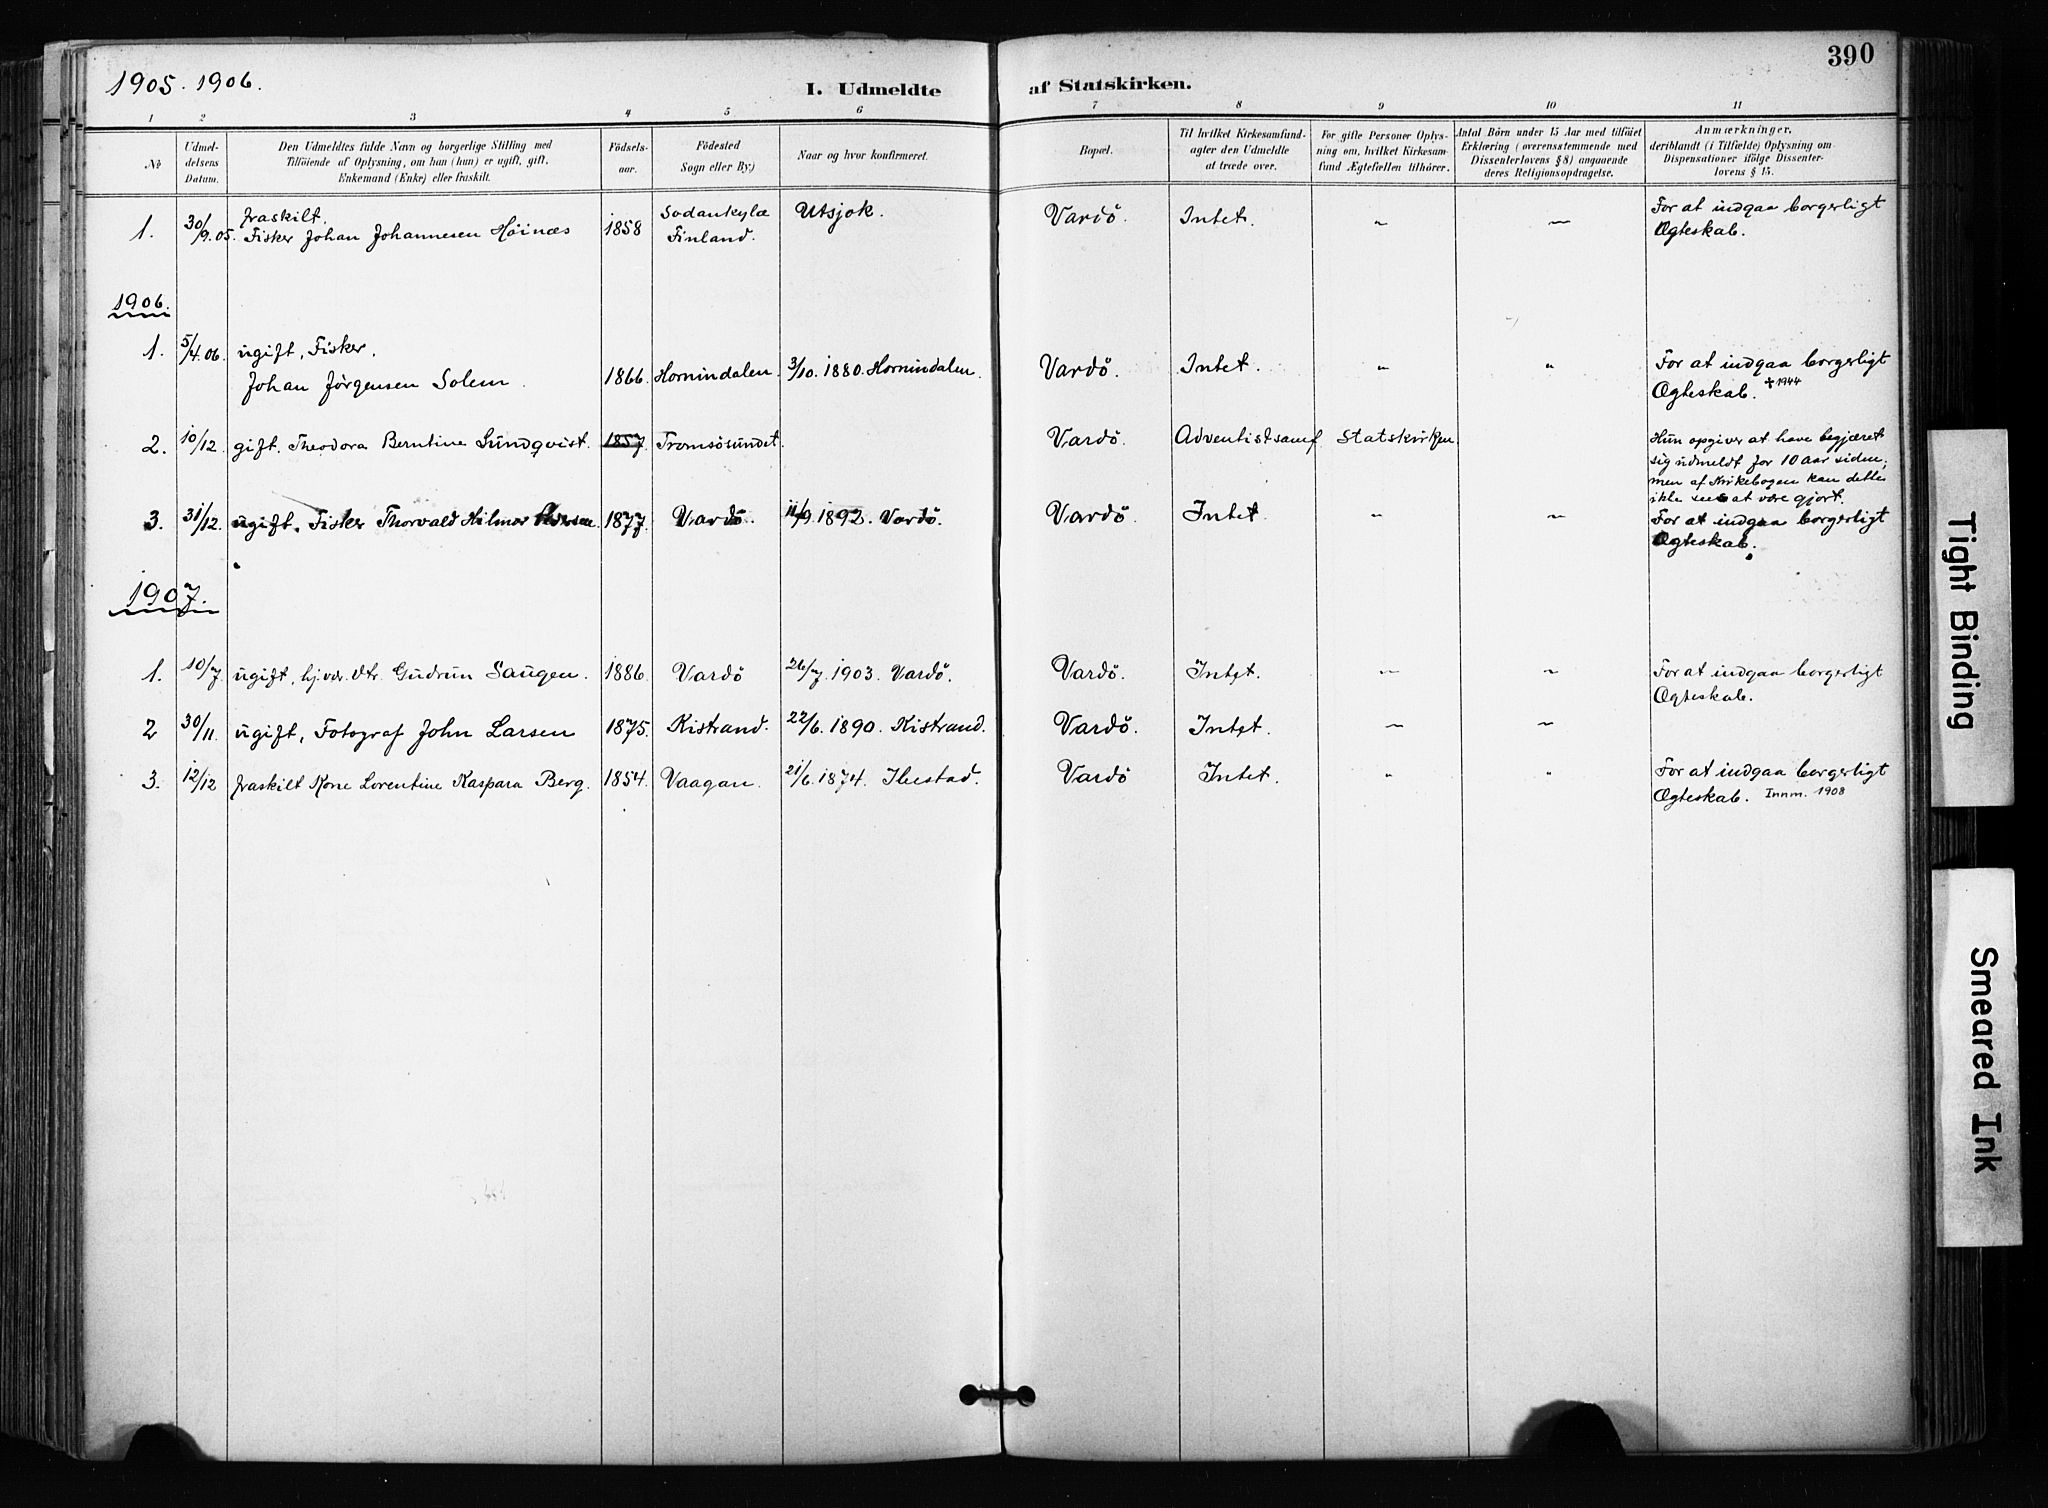 390
1905. 1906.
I. Udmeldte af Statskirken.
1 2 3 4 5 6 7 8 9 10 11
No
Udmeldelsens Datum.
Den Udmeldtes fulde Navn og borgerlige Stilling med
Tilföiende af Oplysning, om han (hun) er ugift, gift,
Enkemand (Enke) eller fraskilt.
Födselsaar.
Födested
Sogn eller By.)
Naar og hvor konfirmeret.
Bopæl.
Til hvilket Kirkesamfund-
agter den Udmeldte
at træde over.
For gifte Personer Oplys-
ning om, hvilket Kirkesam-
fund Ægtefællen tilhörer.
Antal Börn under 15 Aar med tilföiet
Erklæring (overensstemmende med
Dissenterlovens § 8) angaaende
deres Religionsopdragelse.
Anmærkninger,
deriblandt (i Tilfælde) Oplysning om
Dispensationer ifölge Dissenter-
lovens § 15.
1. 30/9.05. fraskilt. Fisker Johan Johannesen Höinæs 1858 Sodankylæ Finland. Utsjok. Vardö. Intet. " — For at indgaa borgerligt Ægteskab.
1906.
1. 5/4.06. ugift, Fisker. Johan Jörgensen Solem. 1866. Hornindalen. 3/10. 1880. Hornindalen. Vardö. Intet. " " For at indgaa borgerligt Ægteskab. + 1944
2. 10/12. gift. Theodora Berntine Lundqvist. 1857. Tromsösundet. Vardö. Adventistsamf. Statskirken. Hun opgiver at have begjæret
sig udmeldt for 10 Aar siden;
men af Kirkebogen kan dette
ikke sees at være gjort.
3. 31/12. ugift. Fisker Thorvald Hilmor 1877. Vardö. 11/9 1892. Vardö. Vardö. Intet. " — For at indgaa borgerligt Ægteskab.
1907.
1. 10/7. ugift, hjvær. dtr. Gudrun Saugen. 1886. Vardö 26/7. 1903. Vardö. Vardö. Intet. — — For at indgaa borgerligt Ægteskab.
2 30/11. ugift, Fotograf John Larsen 1875. Kistrand. 22/6. 1890. Kistrand. Vardö. Intet. — —
3. 12/12 fraskilt Kone Lorentine Kaspara Berg. 1854. Vaagan. 21/6. 1874. Ibestad. Vardö Intet. " " For at indgaa borgerligt Ægteskab. Innm. 1908
Tight Binding
Smeared Ink